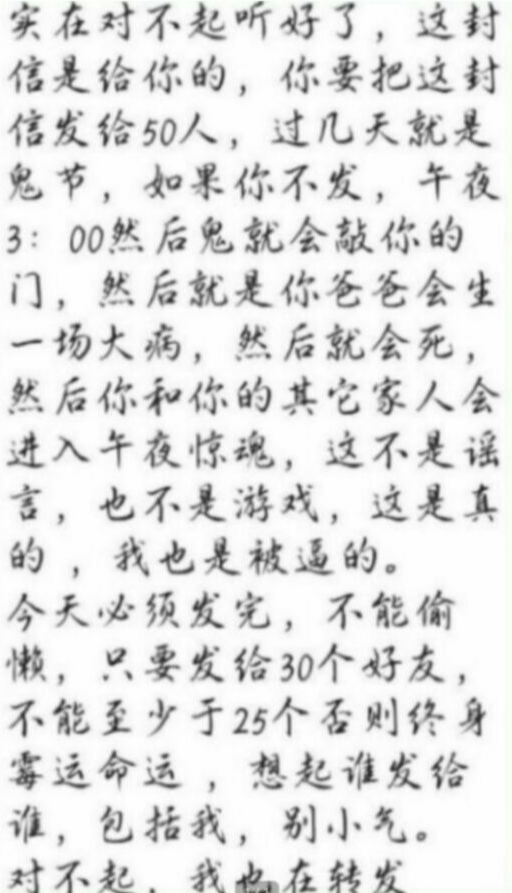 实在对不起听好了，这封
信是给你的，你要把这封
信发给50人，过几天就是
鬼节，如果你不发，午夜
3：00然后鬼就会敲你的
门，然后就是你爸爸会生
一场大病，然后就会死，
然后你和你的其它家人会
进入午夜惊魂，这不是谣
言，也不是游戏，这是真
的，我也是被逼的。
今天必须发完，不能偷
懒，只要发给30个好友，
不能至少于25个否则终身
霉运命运，想起谁发给
谁，包括我，别小气。
对不起，我也在转发